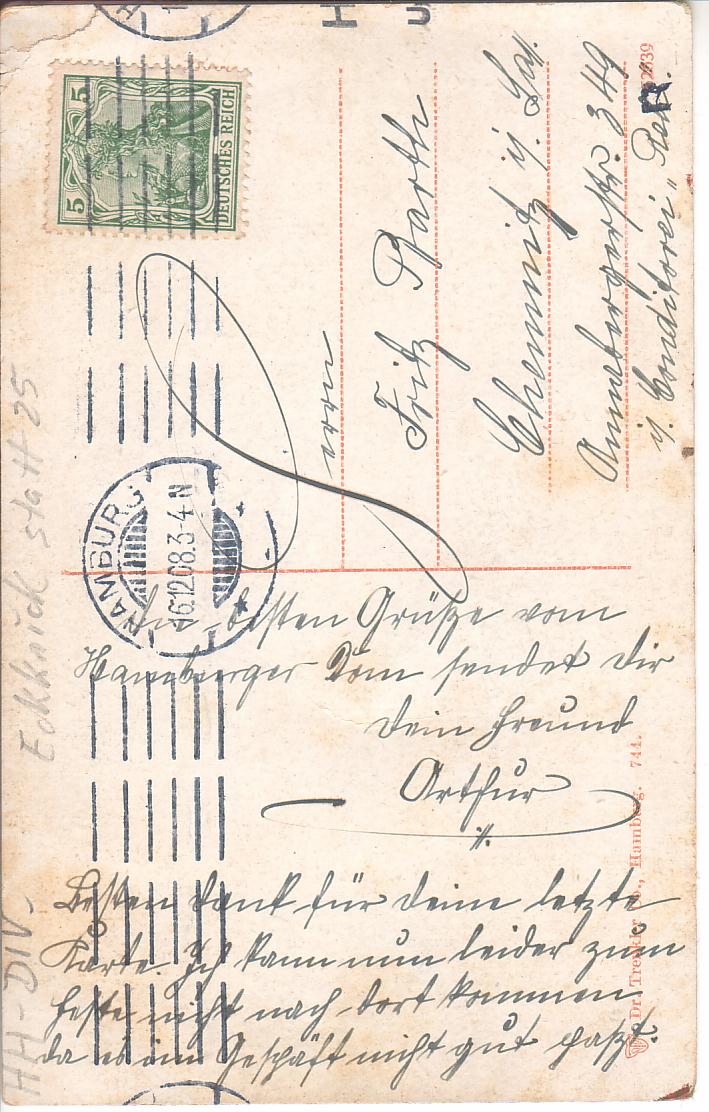 5
5
DEUTSCHES REICH
HAMBURG
16.12.08.3-4 N
Herrn
Fritz Barth
Chemnitz i. Sa.
Annabergerstr. 349
i. Conditorei „
besten Grüße vom
Hamburger Dom sendet Dir
Dein Freund
Arthur
Besten Dank für Deine letzte
Karte. Ich kann nun leider zum
Feste nicht nach dort kommen
da es im Geschäft nicht gut paßt.
Dr. Trenkler Co., Hamburg. 744.
HH-DIV.
Eckknick statt 25